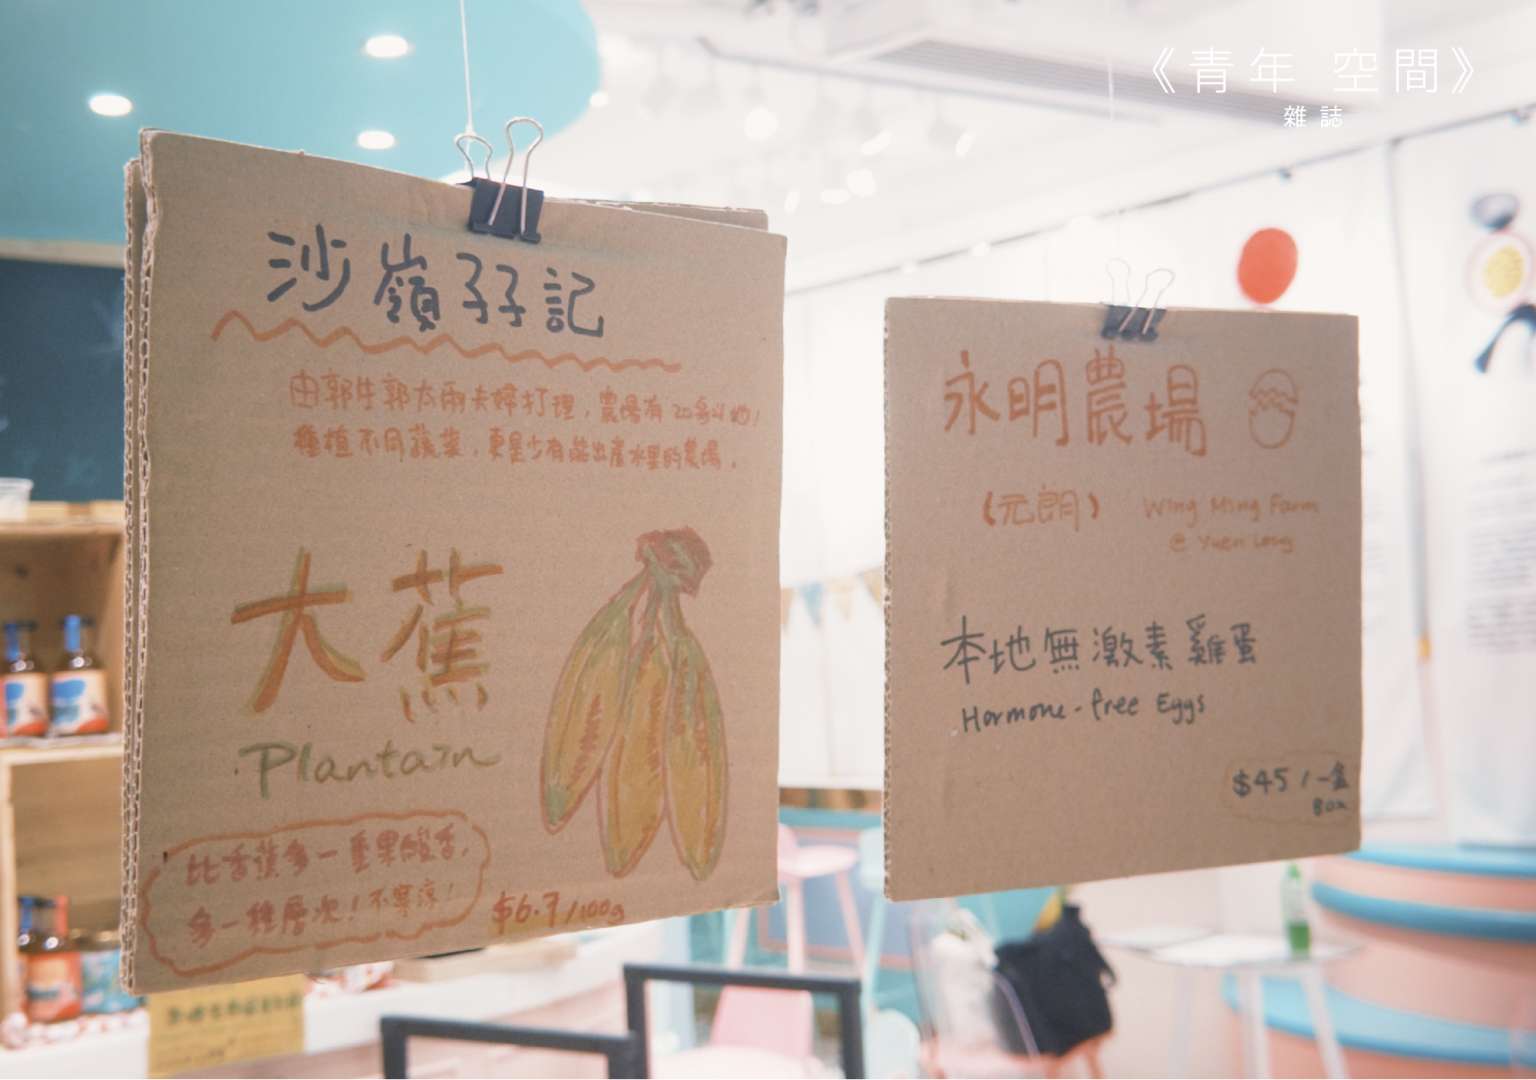 《青年 空間》
雜誌
沙嶺孖記
由郭生郭太兩夫婦打理，農場有20多斗地！
種植不同蔬菜，更是少有能出產水果的農場。
大蕉
Plantain
比香蕉多一重果酸香，
多一種層次！不寒涼！
$6.7/100g
永明農場
（元朗） Wing Ming Farm
@ Yuen Long
本地無激素雞蛋
Hormone-free Eggs
$45/一盒
Box